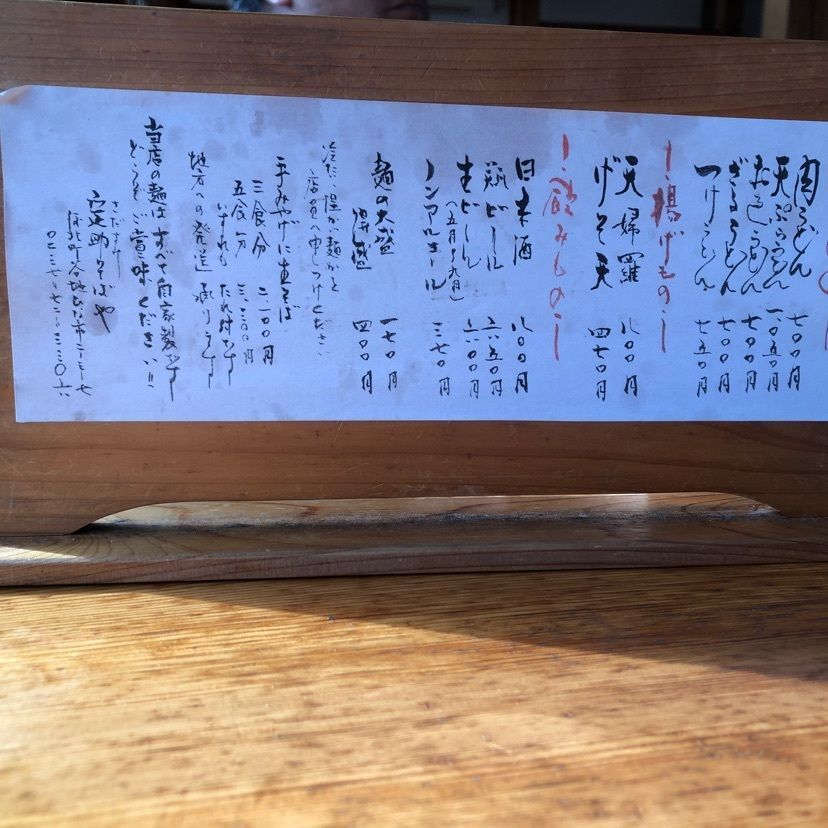 肉うどん 七〇〇円
天ぷらうどん 一〇五〇円
ざるうどん 七〇〇円
つけうどん 七五〇円
揚げもの
天婦羅 八〇〇円
げそ天 四七〇円
飲みもの
日本酒 八〇〇円
瓶ビール 六五〇円
生ビール 六〇〇円
(五月〜九月)
ノンアルコール 三七〇円
麺の大盛 一七〇円
得盛 四〇〇円
冷たい温かい麺かと
店員へ申しつけください
手みやげに生そば
三食分 二一〇〇円
五食分 三三〇〇円
いずれも たれ付です
地方への発送 承ります
当店の麺はすべて自家製です
どうぞご賞味ください!!
さだすけ
定助そばや